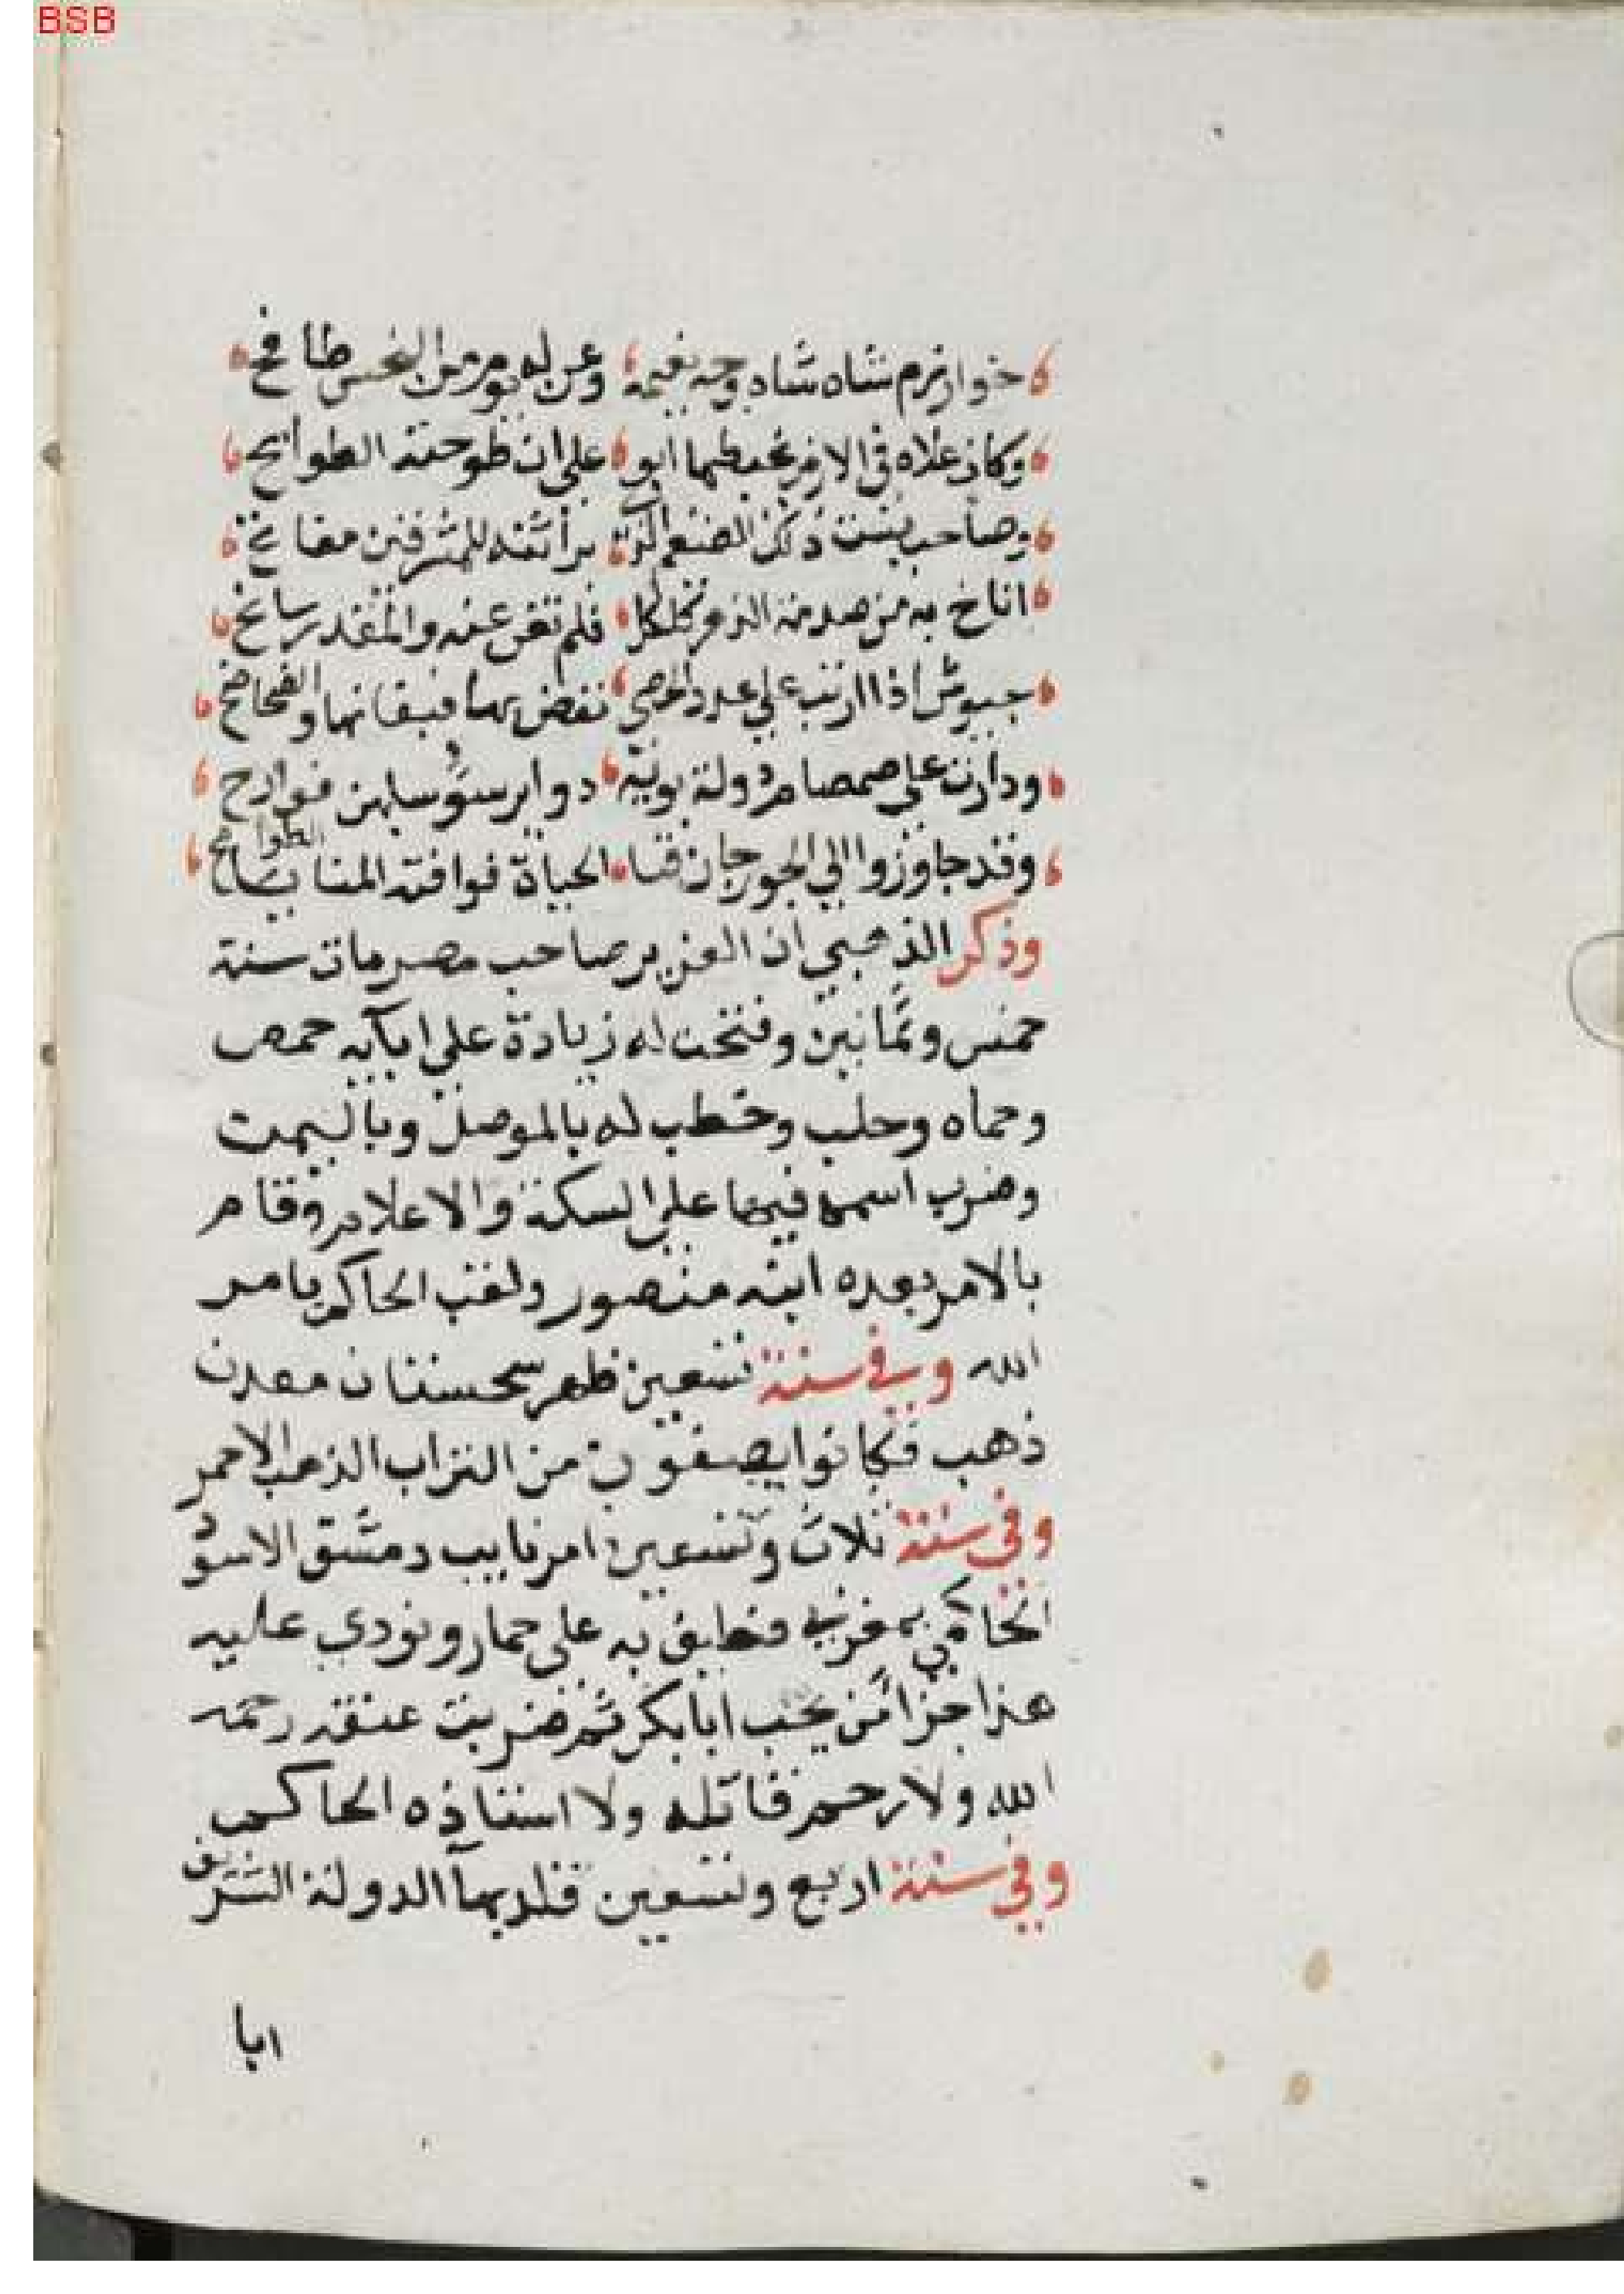 BSB
خوارزم شاه شاه وجه نعيمه وعن له يوم من النحس طالح
وكان علاه في الارض يخبطها ابو على ان طوحته الطوايح
وصاحب بست ذلك الضيغم الذي براثنه للمشرقين مفاتح
اناخ به من صدمة الدهر كلكل فلم تغن عنه والمقدر سانح
جيوش اذا اربت علي عدد الحصي تغص بها قيعانها والضحاضح
ودارت علي صمصام دولة بويه دواير سوء سلبهن فوادح
وقد جاوزوا الي الجوزجان قنا الحياة فوافته المنايا الطوامح
وذكر الذهبي ان العزيز صاحب مصر مات سنة
خمس وثمانين وفتحت له زيادة علي ابآيه حمص
وحماه وحلب وخطب له بالموصل وباليمن
وضرب اسمه فيها علي السكة والاعلام وقام
بالامر بعده ابنه منصور ولقب الحاكم بامر
الله وفي سنة تسعين ظهر سجستان معدن
ذهب فكانوا يصفون من التراب الذهب الاحمر
وفي سنة ثلاث وتسعين امر نايب دمشق الاسود
الحاكمي بمغربي فطيف به علي حمار ونودي عليه
هذا جزا من يحب ابا بكر ثم ضربت عنقه رحمه
الله ولا رحم قاتله ولا استاذه الحاكم
وفي سنة اربع وتسعين قلد بهآ الدولة الشريف
ابا